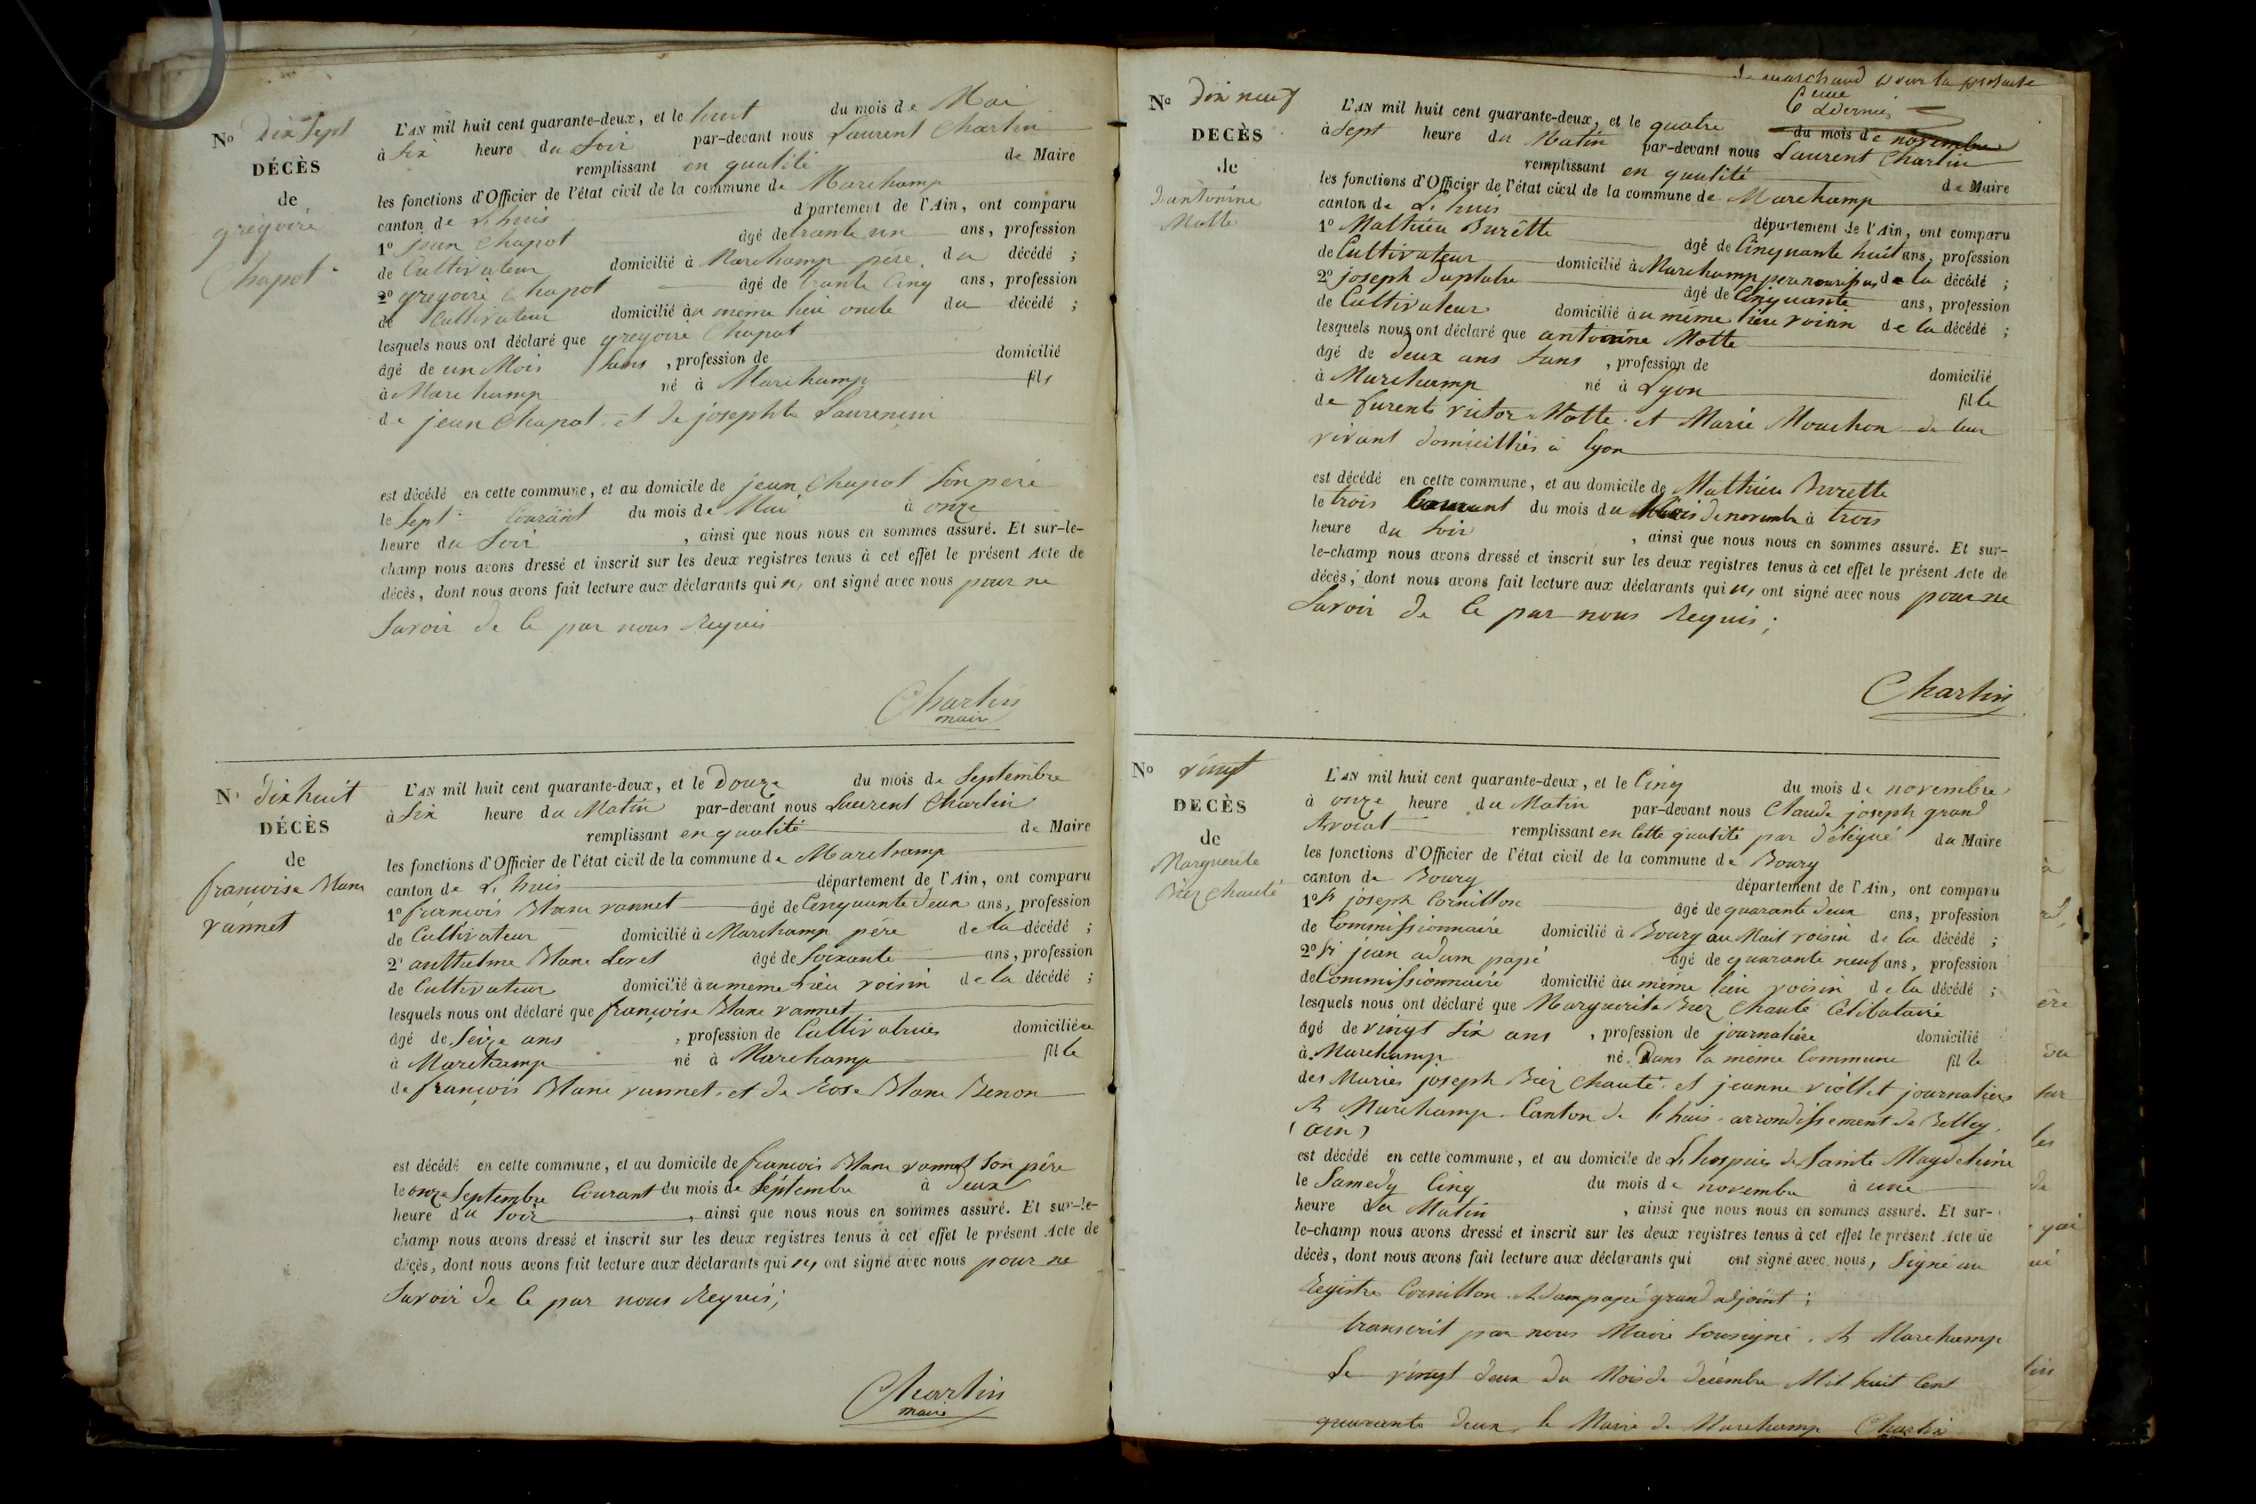 No Dix Sept
DÉCÈS
de
grégoire
Chapot
L'AN mil huit cent quarante-deux, et le huit du mois de Mai
à Six heure du Soir par-devant nous Laurent Charlin
remplissant en qualité de Maire
les fonctions d'Officier de l'état civil de la commune de Marchamp
canton de L'huis département de l'Ain, ont comparu
1º jean Chapot âgé de trante un ans, profession
de Cultivateur domicilié à Marchamp père du décédé ;
2º gregoire Chapot âgé de trante Cinq ans, profession
de Cultivateur domicilié au même lieu oncle du décédé ;
lesquels nous ont déclaré que gregoire Chapot
âgé de un Mois Sans , profession de domicilié
à Marchamp né à Marchamp fils
de jean Chapot et de josephte Laurencin
est décédé en cette commune, et au domicile de jean Chapot Son père
le Sept Courant du mois de Mai à onze
heure du Soir , ainsi que nous nous en sommes assuré. Et sur-le-
champ nous avons dressé et inscrit sur les deux registres tenus à cet effet le présent Acte de
décès, dont nous avons fait lecture aux déclarants qui n, ont signé avec nous pour ne
Savoir de Ce par nous Requis
Charlin
maire
N° dix huit
DÉCÈS
de
francoise Blanc
vannet
L'AN mil huit cent quarante-deux, et le Douze du mois de Septembre
à Six heure du Matin par-devant nous Laurent Charlin
remplissant en qualité de Maire
les fonctions d'Officier de l'état civil de la commune de Marchamp
canton de L'huis département de l'Ain, ont comparu
1º francois Blanc vannet âgé de Cinquante deux ans, profession
de Cultivateur domicilié à Marchamp père de la décédé ;
2º anthelme Blanc âgé de Soixante ans, profession
de Cultivateur domicilié au meme Lieu voisin de la décédé ;
lesquels nous ont déclaré que françoise Blanc vannet
âgé de Seize ans , profession de Cultivatrice domiciliée
à Marchamp né à Marchamp fille
de françois Blanc vannet et de Rose Blanc Benon
est décédé en cette commune, et au domicile de francois Blanc vannet Son père
le onze Septembre Courant du mois de Septembre à deux
heure du Soir , ainsi que nous nous en sommes assuré. Et sur-le-
champ nous avons dressé et inscrit sur les deux registres tenus à cet effet le présent Acte de
décès, dont nous avons fait lecture aux déclarants qui n, ont signé avec nous pour ne
Savoir de Ce par nous Requis ;
Charlin
maire
No Dix neuf
DECÈS
de
d'antonine
Motte
L'AN mil huit cent quarante-deux, et le quatre du mois de novembre
à Sept heure du Matin par-devant nous Laurent Charlin
remplissant en qualité de Maire
les fonctions d'Officier de l'état civil de la commune de Marchamp
canton de L'huis département de l'Ain, ont comparu
1º Mathieu Burêtte âgé de Cinquante huit ans, profession
de Cultivateur domicilié à Marchamp père de la décédé ;
2º joseph âgé de Cinquante ans, profession
de Cultivateur domicilié au même lieu voisin de la décédé ;
lesquels nous ont déclaré que antonine Motte
âgé de deux ans Sans , profession de domicilié
à Marchamp né à Lyon fille
de victor Motte et Marie Mouchon de leur
vivant domiciliés à Lyon
est décédé en cette commune, et au domicile de Mathieu Burette
le trois Courant du mois du Mois de novembre à trois
heure du Soir , ainsi que nous nous en sommes assuré. Et sur-
le-champ nous avons dressé et inscrit sur les deux registres tenus à cet effet le présent Acte de
décès, dont nous avons fait lecture aux déclarants qui n, ont signé avec nous pour ne
Savoir de Ce par nous Requis ;
Charlin
No vingt
DECÈS
de
Marguerite
L'AN mil huit cent quarante-deux, et le Cinq du mois de novembre
à onze heure du Matin par-devant nous Claude joseph grand
Avocat remplissant en Cette qualité par délégué du Maire
les fonctions d'Officier de l'état civil de la commune de Bourg
canton de Bourg département de l'Ain, ont comparu
1º Sr joseph Cornillon âgé de quarante deux ans, profession
de Commissionnaire domicilié à Bourg au Mail voisin de la décédé ;
2º Sr jean adam papé âgé de quarante neuf ans, profession
de Commissionnaire domicilié au même lieu voisin de la décédé ;
lesquels nous ont déclaré que Marguerite Chanté Célibataire
âgé de vingt Six ans , profession de journalière domicilié
à Marchamp né Dans la même Commune fille
des Mariés joseph Chanté et jeanne viollet journaliers
A Marchamp Canton de l'huis arrondissement de Belley
(ain)
est décédé en cette commune, et au domicile de L'hospice de Sainte Magdeleine
le Samedy Cinq du mois de novembre à une
heure du Matin , ainsi que nous nous en sommes assuré. Et sur-
le-champ nous avons dressé et inscrit sur les deux registres tenus à cet effet le présent Acte de
décès, dont nous avons fait lecture aux déclarants qui ont signé avec nous, Signé au
Registre Cornillon Adam papé grand adjoint ;
transcrit par nous Maire Sousigné A Marchamp
Le vingt deux du Mois de décembre Mil huit Cent
quarante deux le Maire de Marchamp Charlin